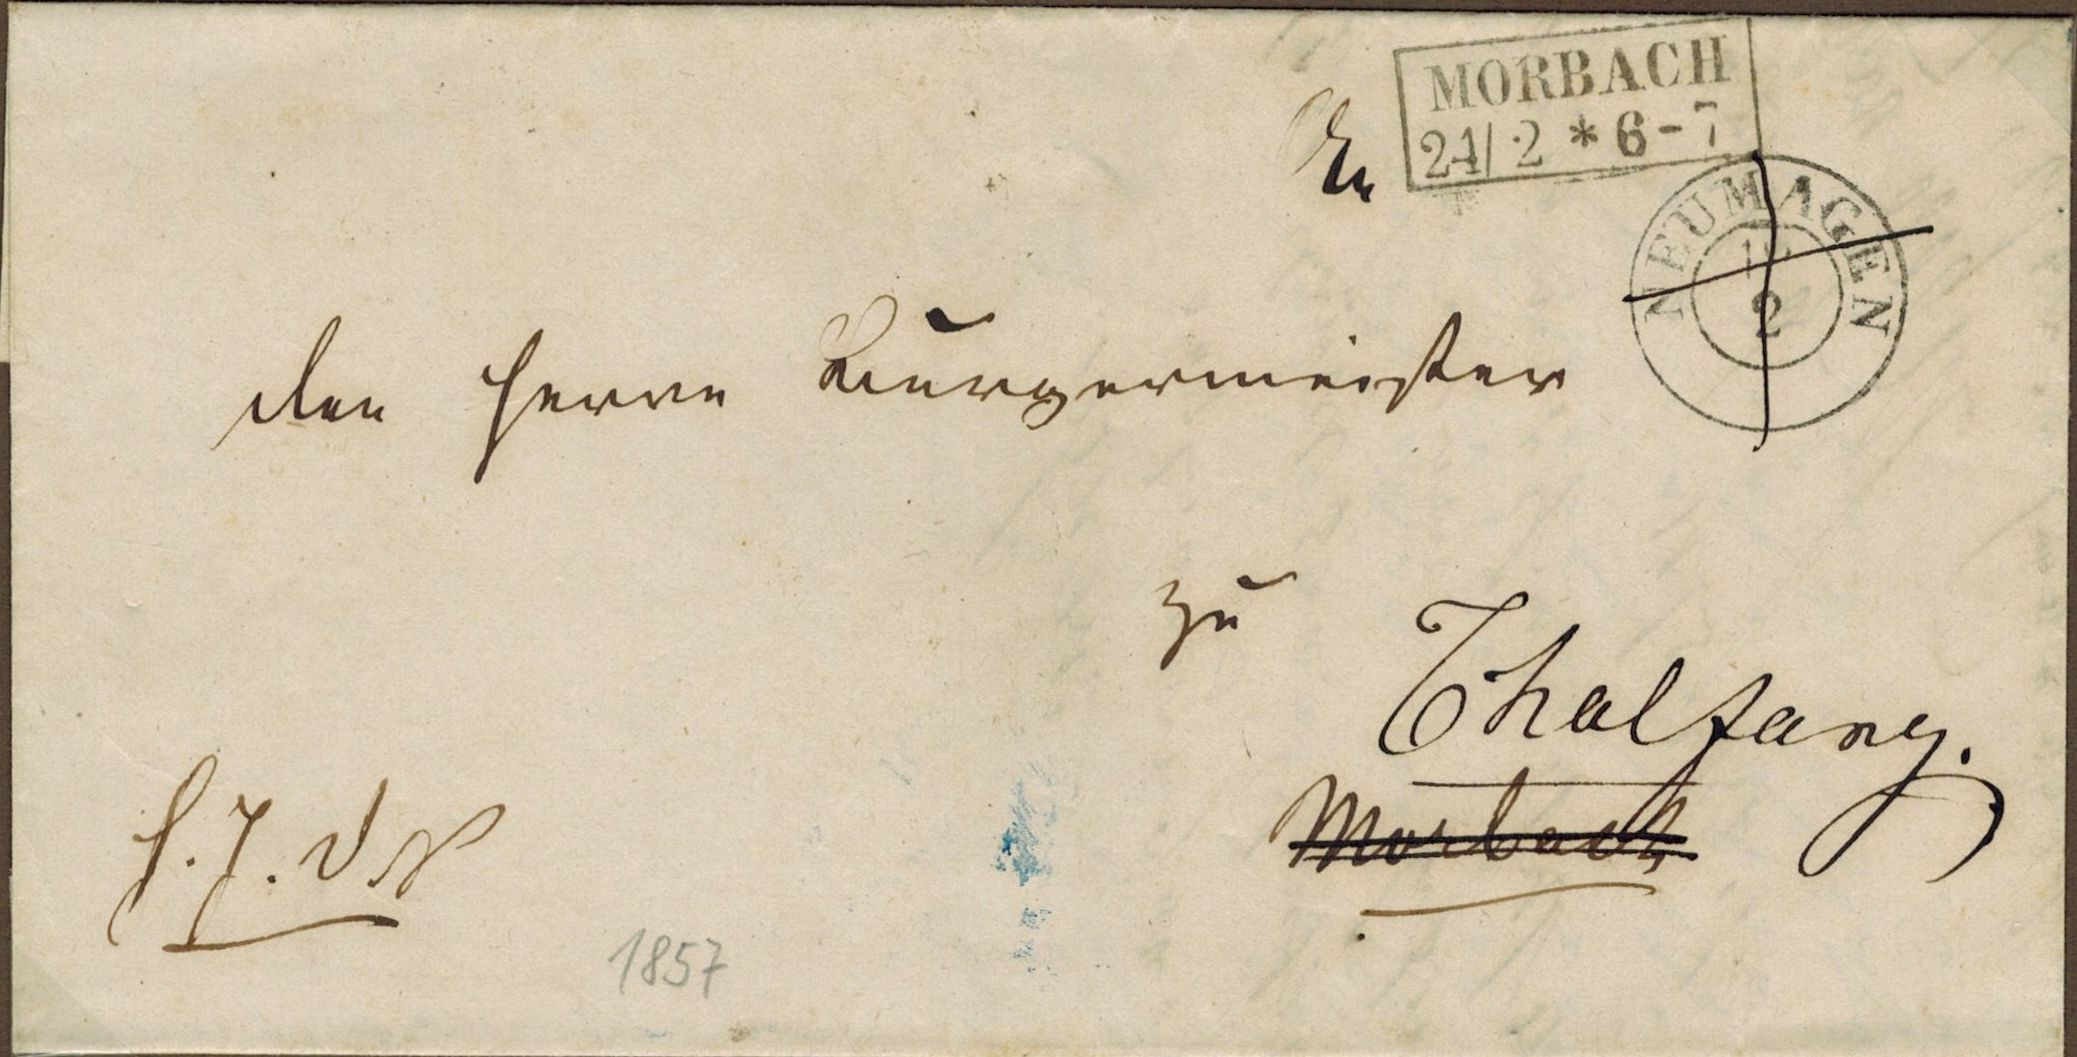 MORBACH
21/2 * 6-7
An
NEUMAGEN
2
den Herrn Bürgermeister
zu
Thalfang.
Morbach
H. J. D. S.
1857